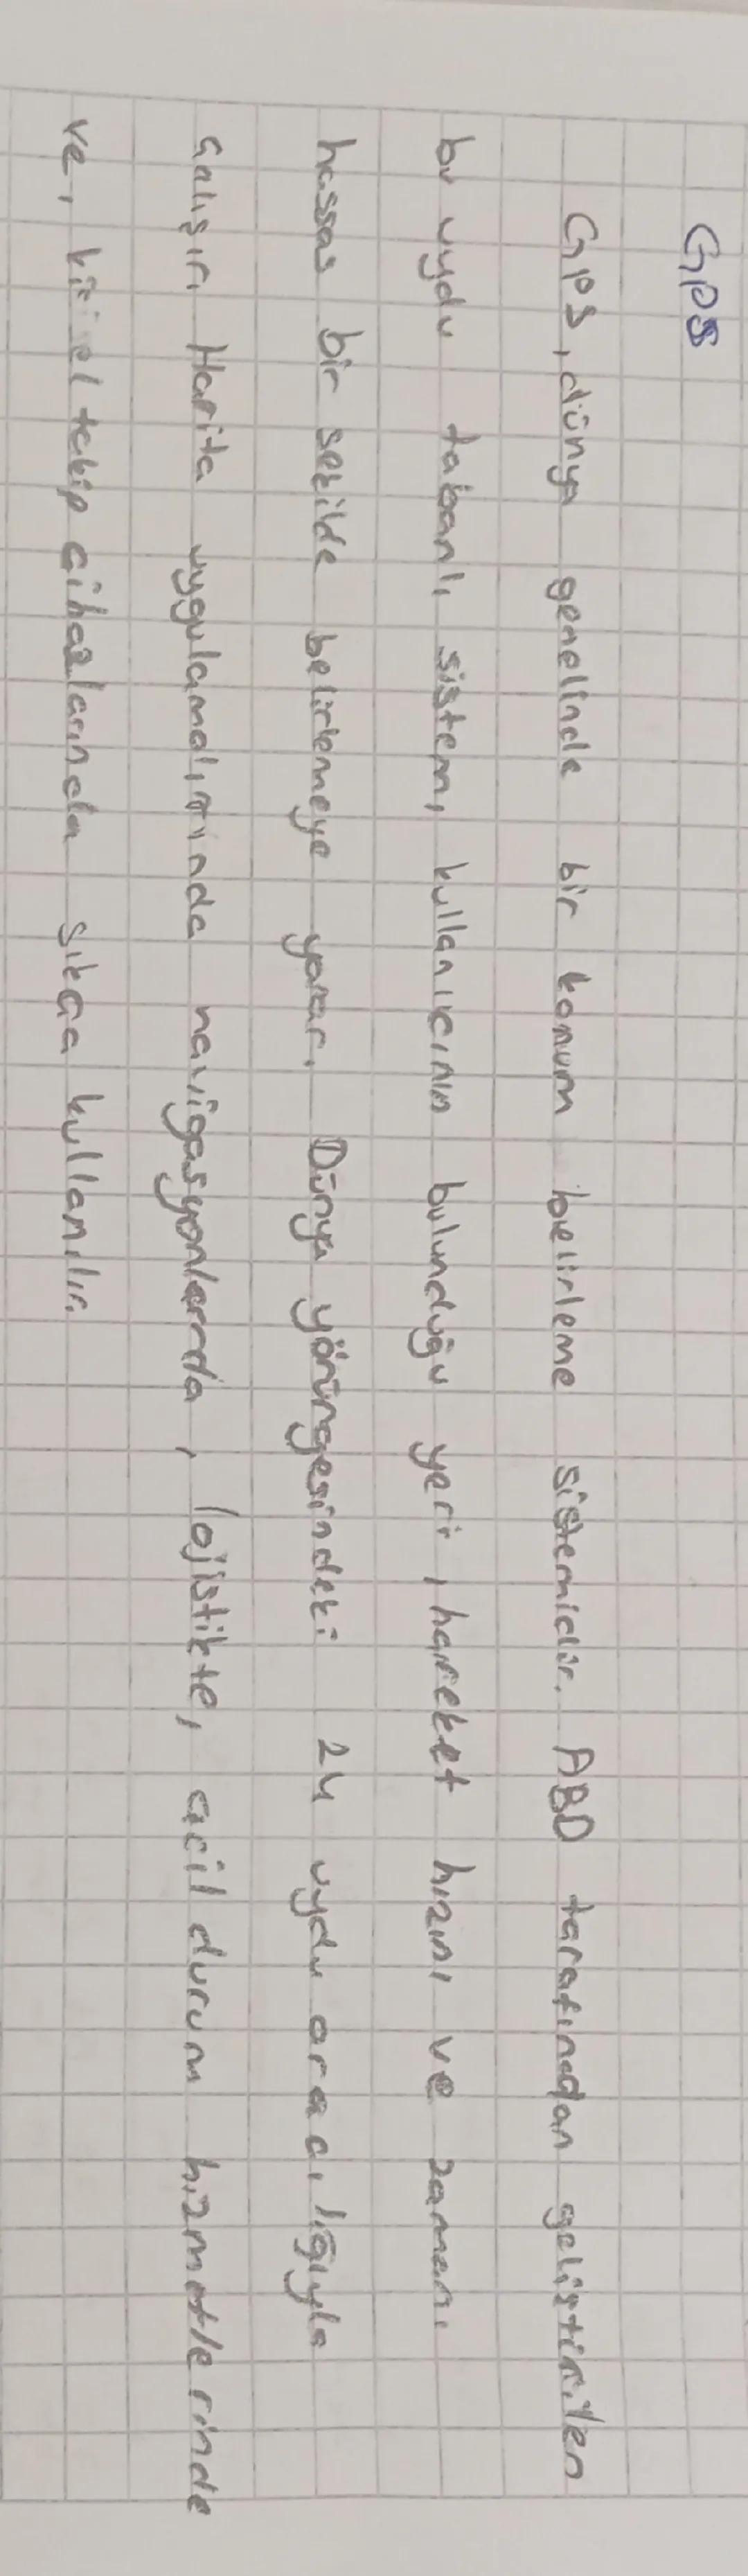 GPS
GPS, dünya genelinde bir konum belirleme sistemidir. ABD tarafından geliştirilen
bu uydu tabanlı sistem, kullanıcının bulunduğu yeri, hareket hızını ve zamanı
hassas bir şekilde belirlemeye yarar. Dünya yörüngesindeki 24 uydu aracılığıyla
çalışır. Harita uygulamalarında navigasyonlarda, lojistikte, acil durum hizmetlerinde
ve, kişisel takip cihazlarında sıkça kullanılır.